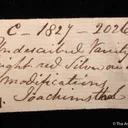 C - 1827 - 2026
Undescribed Variety
light red Silver ore
modification
Joachimsthal